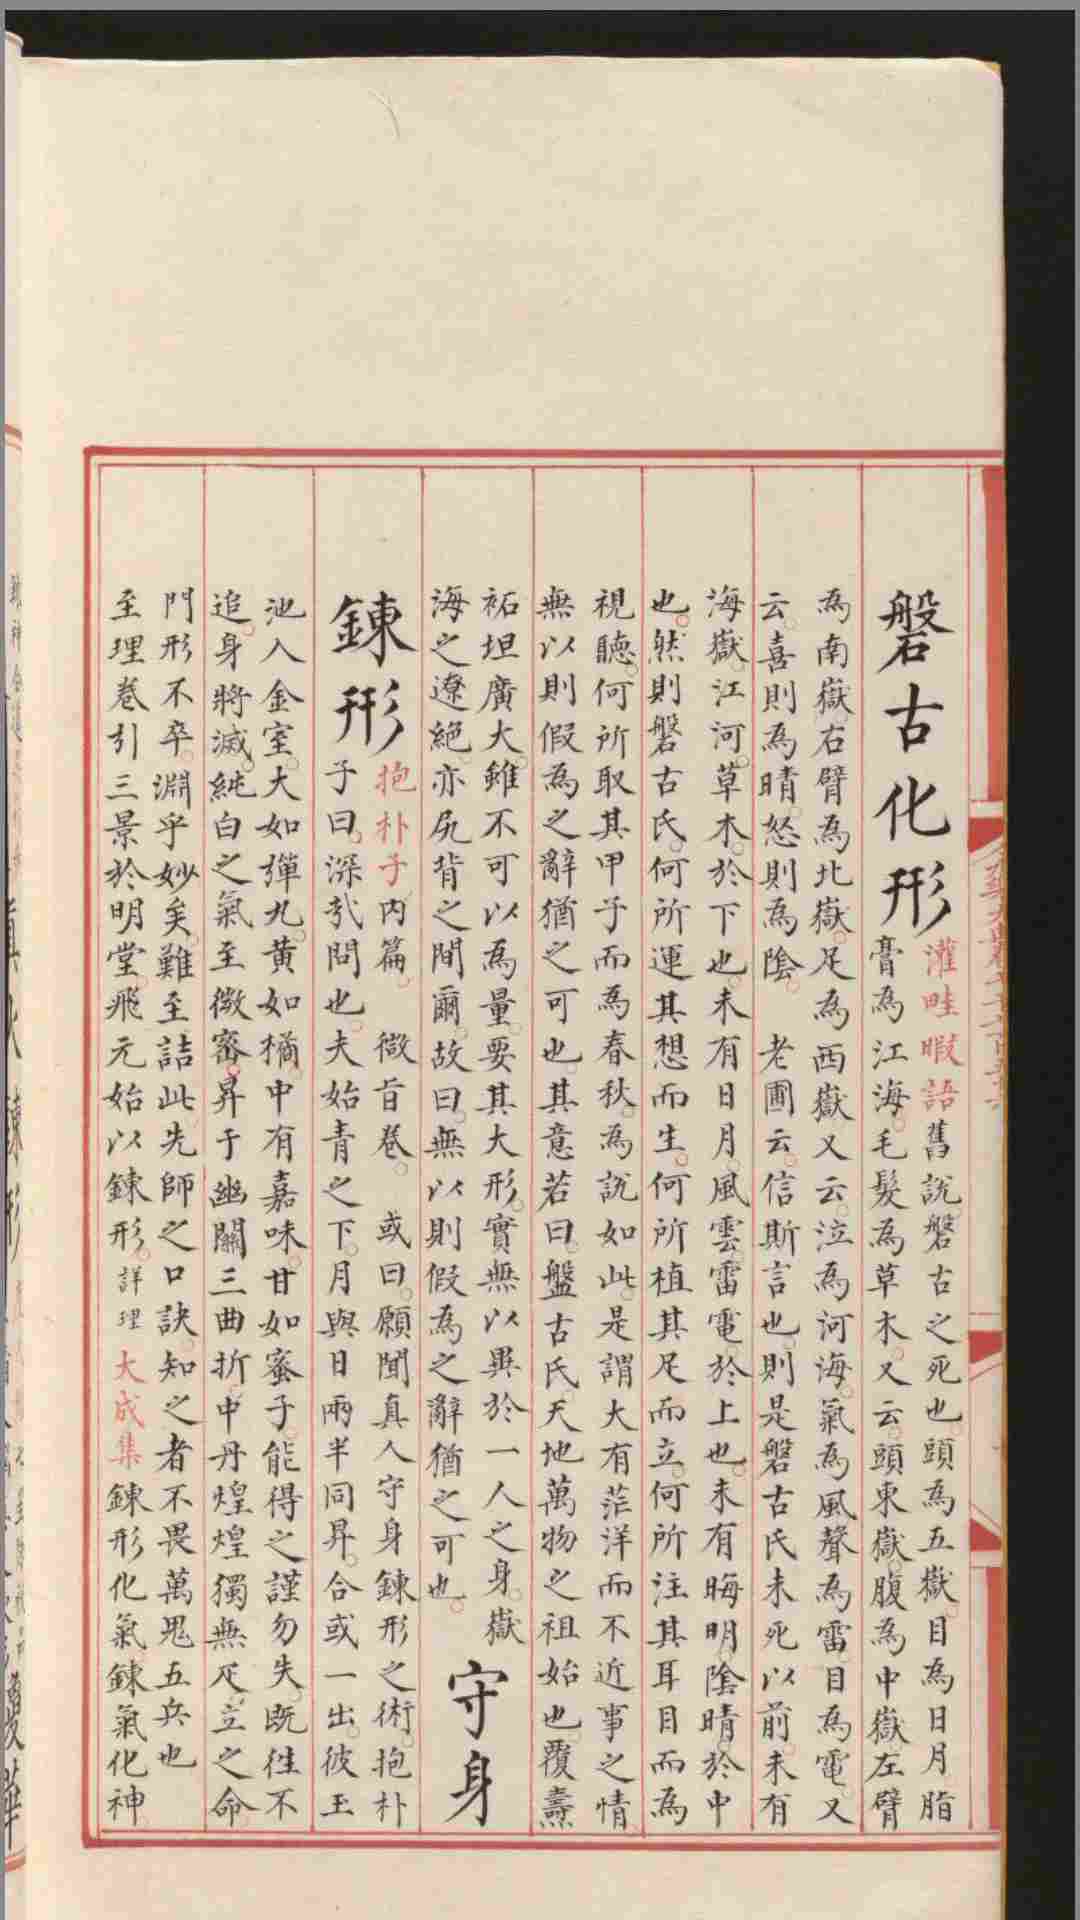 磐古化形
灌畦暇語舊說磐古之死也頭為五嶽目為日月脂
膏為江海毛髮為草木又云頭東嶽腹為中嶽左臂
為南嶽右臂為北嶽足為西嶽又云泣為河海氣為風聲為雷目為電又
云喜則為晴怒則為陰 老圃云信斯言也則是磐古氏未死以前未有
海嶽江河草木於下也未有日月風雲雷電於上也未有晦明陰晴於中
也然則磐古氏何所運其想而生何所植其足而立何所注其耳目而為
視聽何所取其甲子而為春秋為說如此是謂大有茫洋而不近事之情
無以則假為之辭猶之可也其意若曰盤古氏天地萬物之祖始也覆燾
袥坦廣大雖不可以為量要其大形實無以異於一人之身嶽
海之遼絕亦尻背之間爾故曰無以則假為之辭猶之可也
守身
鍊形
抱朴子內篇 微旨卷 或曰願聞真人守身鍊形之術抱朴
子曰深哉問也夫始青之下月與日兩半同昇合或一出彼玉
池入金室大如彈丸黃如橘中有嘉味甘如蜜子能得之謹勿失既徃不
追身將滅純白之氣至微密昇于幽關三曲折中丹煌煌獨無疋立之命
門形不卒淵乎妙矣難至詰此先師之口訣知之者不畏萬鬼五兵也
至理卷引三景於明堂飛元始以鍊形詳理大成集鍊形化氣鍊氣化神